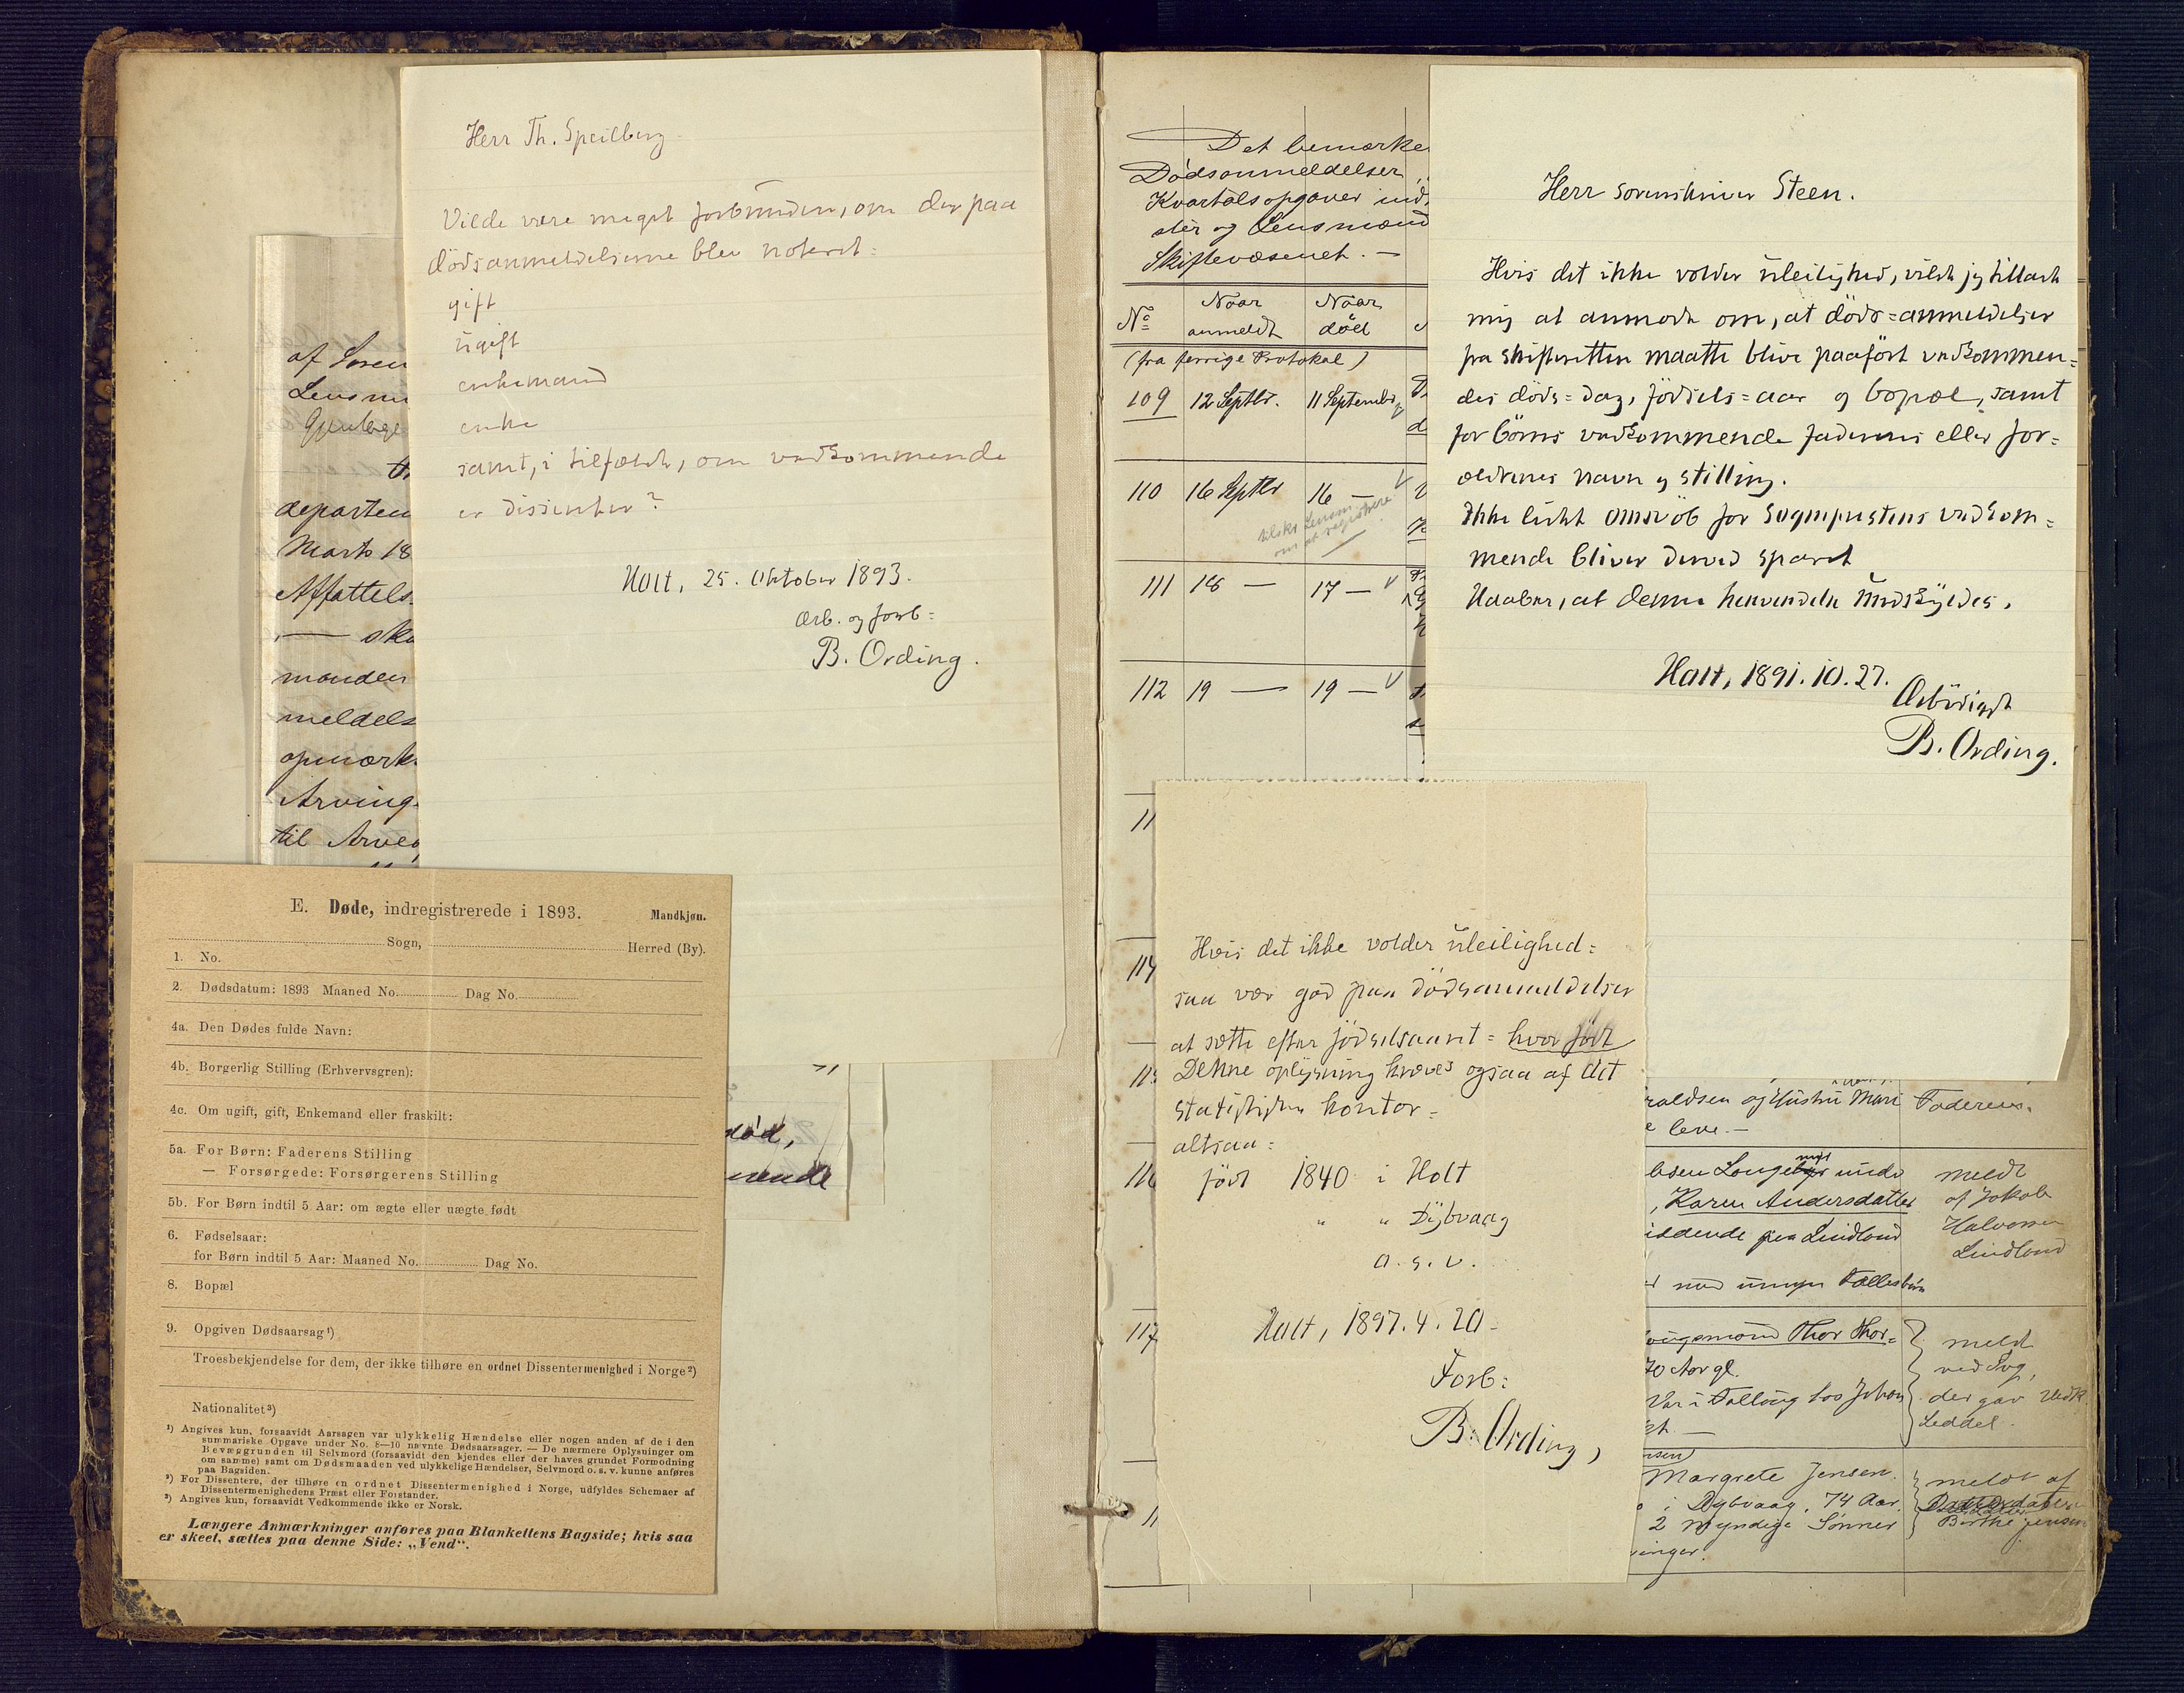 Herr Th. Speilberg.
Vilde være meget forbunden, om der paa
dödsanmeldelserne blev noteret:
gift
ugift
enkemand
enke
samt, i tilfælde, om vedkommende
er dissenter?
Holt, 25. Oktober 1893.
Ærb. og forb=
B. Ording.
af Soren
Lensm
departem
Marts 18
Affattels
— ska
manden
meldels
opmærk
Arving
til Arve
E. Døde, indregistrerede i 1893. Mandkjøn.
Sogn, Herred (By).
1. No.
2. Dødsdatum: 1893 Maaned No. Dag No.
4a. Den Dødes fulde Navn:
4b. Borgerlig Stilling (Erhvervsgren):
4c. Om ugift, gift, Enkemand eller fraskilt:
5a. For Børn: Faderens Stilling
— Forsørgede: Forsørgerens Stilling
5b. For Børn indtil 5 Aar: om ægte eller uægte født
6. Fødselsaar:
for Børn indtil 5 Aar: Maaned No. Dag No.
8. Bopæl
9. Opgiven Dødsaarsag¹)
Troesbekjendelse for dem, der ikke tilhøre en ordnet Dissentermenighed i Norge²)
Nationalitet³)
¹) Angives kun, forsaavidt Aarsagen var ulykkelig Hændelse eller nogen anden af de i den
summariske Opgave under No. 8—10 nævnte Dødsaarsager. — De nærmere Oplysninger om
Bevæggrunden til Selvmord (forsaavidt den kjendes eller der haves grundet Formodning
om samme) samt om Dødsmaaden ved ulykkelige Hændelser, Selvmord o. s. v. kunne anføres
paa Bagsiden.
²) For Dissentere, der tilhøre en ordnet Dissentermenighed i Norge, udfyldes Schemaer af
Dissentermenighedens Præst eller Forstander.
³) Angives kun, forsaavidt Vedkommende ikke er Norsk.
Længere Anmærkninger anføres paa Blankettens Bagside; hvis saa
er skeet, sættes paa denne Side: „Vend“.
død,
nende
Det bemærke
Dödsanmeldelser
Kvartalsopgaver ind
ster og Lensmænd
Skiftevæsenet. —
No Naar anmeldt Naar död
(fra forrige Protokol)
109 12 Septbr. 11 September
110 16 Septbr 16 —
tilskr. Lensm.
om at registrere
111 18 — 17 —
112 19 — 19 —
11
114
115
116
117
11
Herr sorenskriver Steen.
Hvis det ikke volder uleilighed, vilde jeg tillade
mig at anmode om, at döds=anmeldelser
fra skifteretten maatte blive paafört vedkommen=
des döds=dag, födsels=aar og bopæl, samt
for börns vedkommende faderens eller for=
ældrenes navn og stilling.
Ikke lidet omsvöb for sogneprestens vedkom=
mende bliver derved sparet
Haaber, at denne henvendelse undskyldes.
Holt, 1891.10.27.
Ærbödigst
B. Ording.
Hvis det ikke volder uleilighed=
saa vær god paa dödsanmeldelser
at sætte efter födselsaaret= hvor födt
Denne oplysning kræves ogsaa af det
statistiske kontor=
altsaa=
födt 1840 i Holt
" " Dybvaag
o. s. v.
Holt, 1897.4.20.
Forb:
B. Ording,
raldsen og Hustru Mari Faderen.
e leve. —
, Karen Andersdatter
siddende paa Lindland
meldt
af Jakob
Halvorsen
Lindland
Thor Thor=
70 Aar gl.
meldt
ved Sog,
der gav Vedk.
Seddel.
Margrete Jensen.
i Dybvaag, 74 Aar.
2 myndige Sønner
meldt af
Berthe Jensen